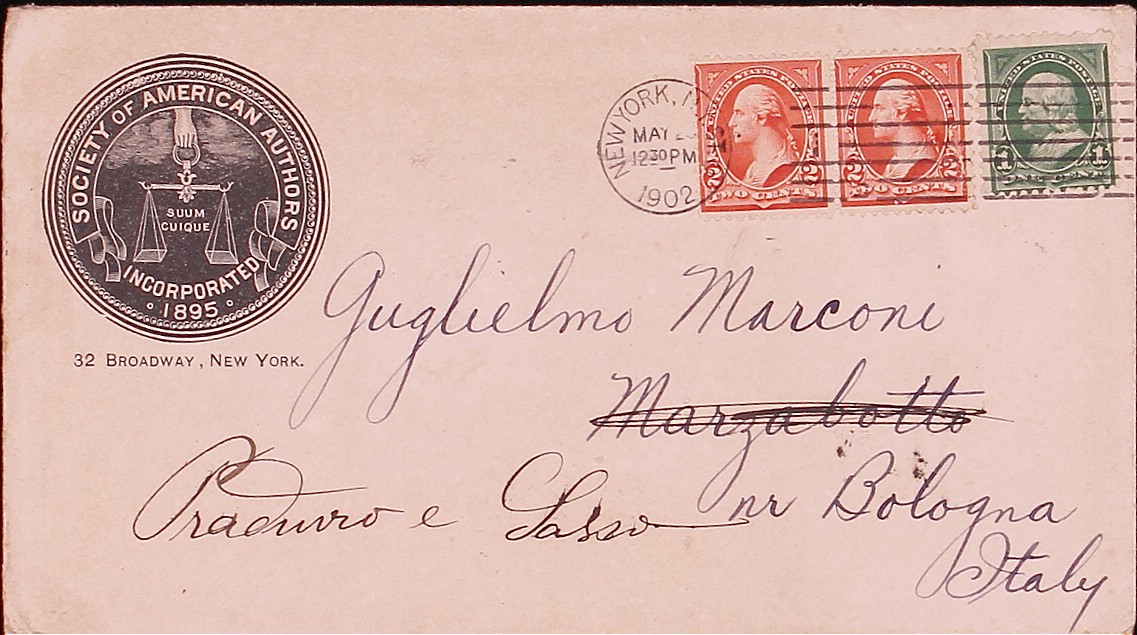 SOCIETY OF AMERICAN AUTHORS
SUUM
CUIQUE
INCORPORATED
1895
32 BROADWAY, NEW YORK.
NEW YORK, N
MAY
12 30 PM
1902
UNITED STATES POSTAGE
2 TWO CENTS 2
UNITED STATES POSTAGE
2 TWO CENTS 2
UNITED STATES POSTAGE
1 ONE CENT 1
Guglielmo Marconi
Marzabotto
Praduro e Sasso nr Bologna
Italy